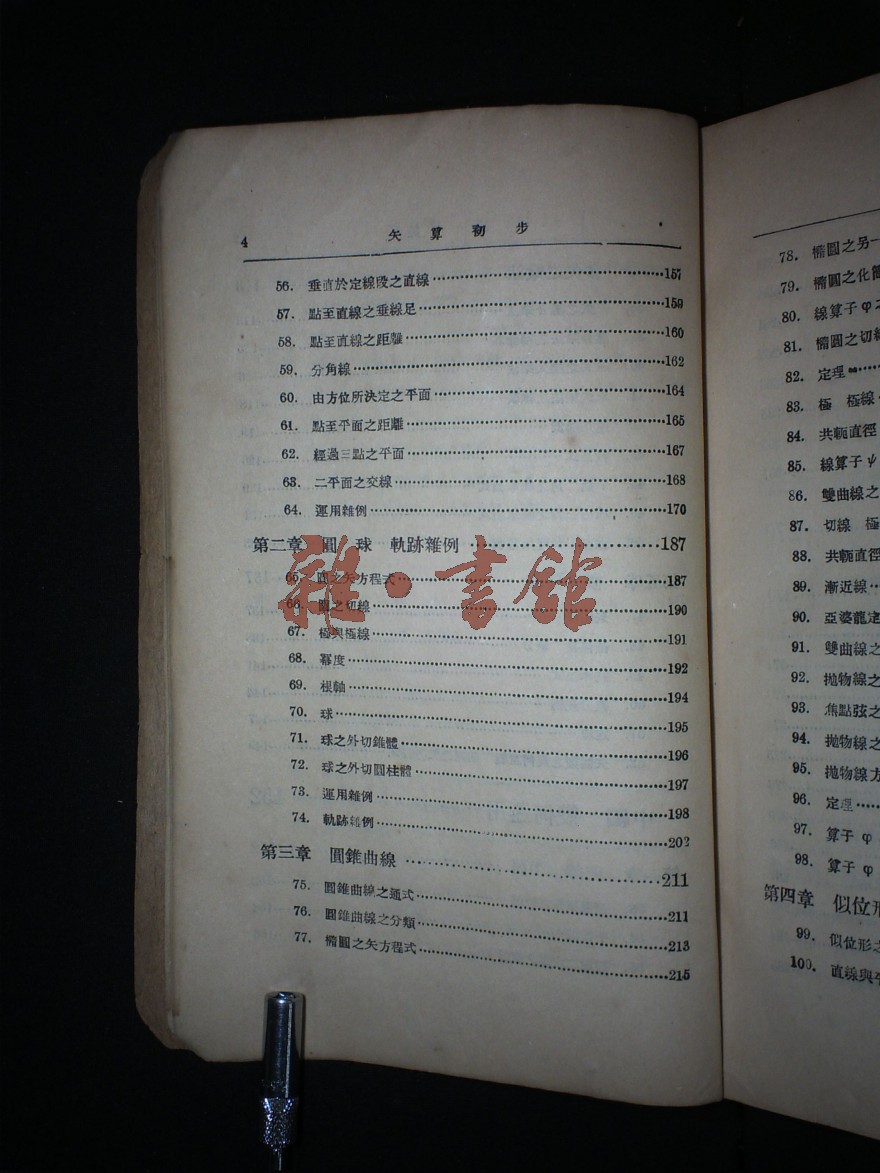 4
矢算初步
56. 垂直於定線段之直線 157
57. 點至直線之垂線足 159
58. 點至直線之距離 160
59. 分角線 162
60. 由方位所決定之平面 164
61. 點至平面之距離 165
62. 經過三點之平面 167
63. 二平面之交線 168
64. 運用雜例 170
第二章 圓 球 軌跡雜例 187
65. 圓之矢方程式 187
66. 圓之切線 190
67. 極與極線 191
68. 冪度 192
69. 根軸 194
70. 球 195
71. 球之外切錐體 196
72. 球之外切圓柱體 197
73. 運用雜例 198
74. 軌跡雜例 203
第三章 圓錐曲線 211
75. 圓錐曲線之通式 211
76. 圓錐曲線之分類 213
77. 橢圓之矢方程式 215
雜·書館
78. 橢圓之另一
79. 橢圓之化簡
80. 線算子 φ 之
81. 橢圓之切線
82. 定理
83. 極 極線
84. 共軛直徑
85. 線算子 ψ
86. 雙曲線之
87. 切線 極
88. 共軛直徑
89. 漸近線
90. 亞婆龍定
91. 雙曲線之
92. 拋物線之
93. 焦點弦之
94. 拋物線之
95. 拋物線方
96. 定理
97. 算子 φ
98. 算子 φ
第四章 似位形
99. 似位形之
100. 直線與平